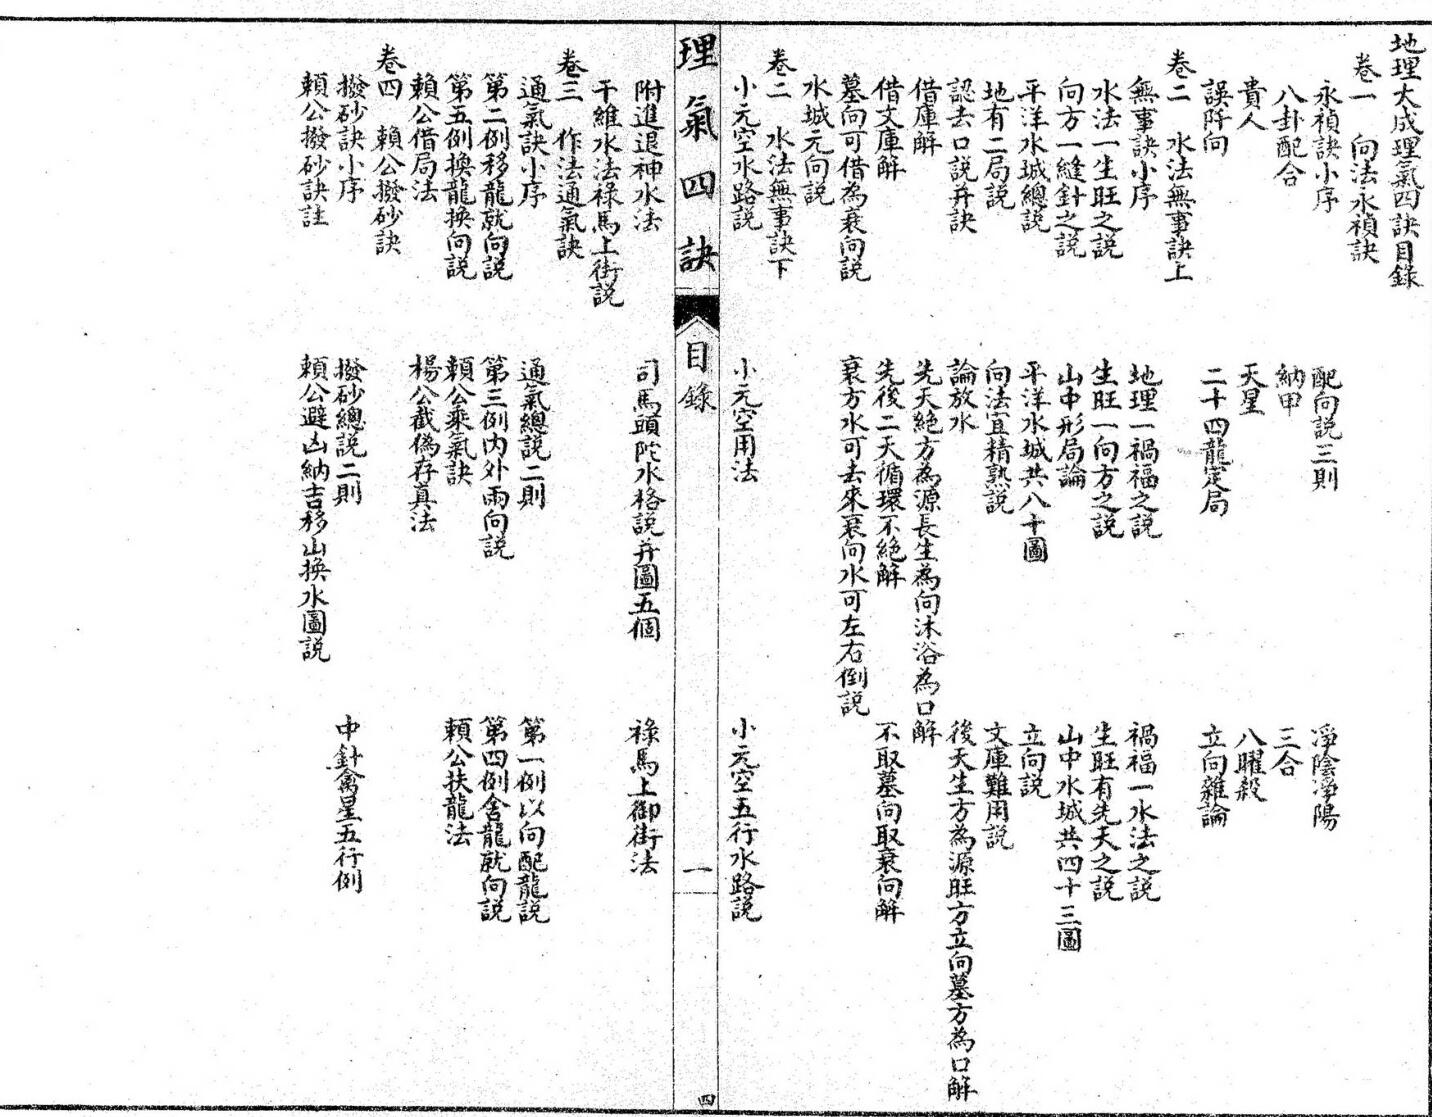 地理大成理氣四訣目錄
卷一　向法永禎訣
永禎訣小序　配向說三則　淨陰淨陽
八卦配合　納甲　三合
貴人　天星　八曜殺
誤阡向　二十四龍定局　立向雜論
卷二　水法無事訣上
無事訣小序　地理一禍福之說　禍福一水法之說
水法一生旺之說　生旺一向方之說　生旺有先天之說
向方一縫針之說　山中形局論　山中水城共四十三圖
平洋水城總說　平洋水城共八十圖　立向說
地有二局說　向法宜精熟說　文庫難用說
認去口說并訣　論放水　後天生方為源旺方立向墓方為口解
借庫解　先天絕方為源長生為向沐浴為口解
借文庫解　先後二天循環不絕解　不取墓向取衰向解
墓向可借為衰向說　衰方水可去來衰向水可左右倒說
水城元向說
卷二　水法無事訣下
小元空水路說　小元空用法　小元空五行水路說
理氣四訣　目錄　一　四
附進退神水法　司馬頭陀水格說并圖五個　祿馬上御街法
干維水法祿馬上街說
卷三　作法通氣訣
通氣訣小序　通氣總說二則　第一例以向配龍說
第二例移龍就向說　第三例內外兩向說　第四例舍龍就向說
第五例換龍換向說　賴公乘氣訣　賴公扶龍法
賴公借局法　楊公截偽存真法
卷四　賴公撥砂訣
撥砂訣小序　撥砂總說二則　中針禽星五行例
賴公撥砂訣註　賴公避凶納吉移山換水圖說